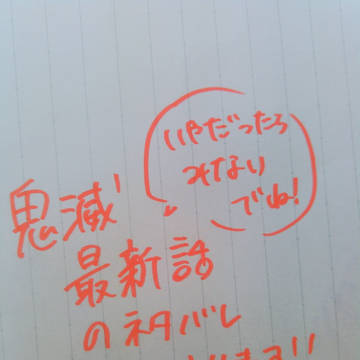 いやだったら
みない
でね!
鬼滅
最新話
のネタバレ